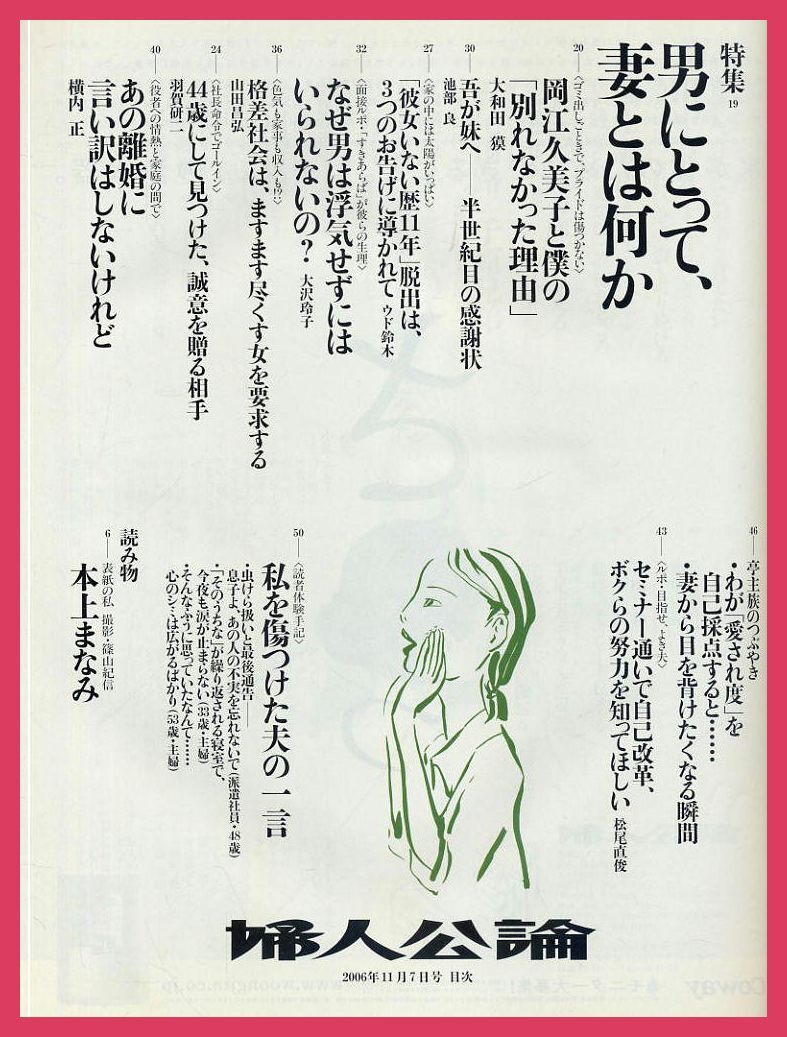 特集 19
男にとって、
妻とは何か
20 〈ゴミ出しごときで、プライドは傷つかない〉
岡江久美子と僕の
「別れなかった理由」
大和田 獏
30
吾が妹へ――半世紀目の感謝状
池部 良
27 〈家の中には太陽がいっぱい〉
「彼女いない歴11年」脱出は、
3つのお告げに導かれて ウド鈴木
32 〈面接ルポ・「すきあらば」が彼らの生理〉
なぜ男は浮気せずには
いられないの? 大沢玲子
36 〈色気も家事も収入も!?〉
格差社会は、ますます尽くす女を要求する
山田昌弘
24 〈社長命令でゴールイン〉
44歳にして見つけた、誠意を贈る相手
羽賀研二
40 〈役者への情熱と家庭の間で〉
あの離婚に
言い訳はしないけれど
横内 正
46 亭主族のつぶやき
・わが「愛され度」を
自己採点すると……
・妻から目を背けたくなる瞬間
43 〈ルポ・目指せ、よき夫〉
セミナー通いで自己改革、
ボクらの努力を知ってほしい 松尾直俊
50 〈読者体験手記〉
私を傷つけた夫の一言
・虫けら扱いと最後通告――
息子よ、あの人の不実を忘れないで(派遣社員・48歳)
・「そのうちな」が繰り返される寝室で、
今夜も涙が止まらない(33歳・主婦)
・そんなふうに思っていたなんて……
心のシミは広がるばかり(53歳・主婦)
読み物
6 表紙の私 撮影・篠山紀信
本上まなみ
婦人公論
2006年11月7日号 目次